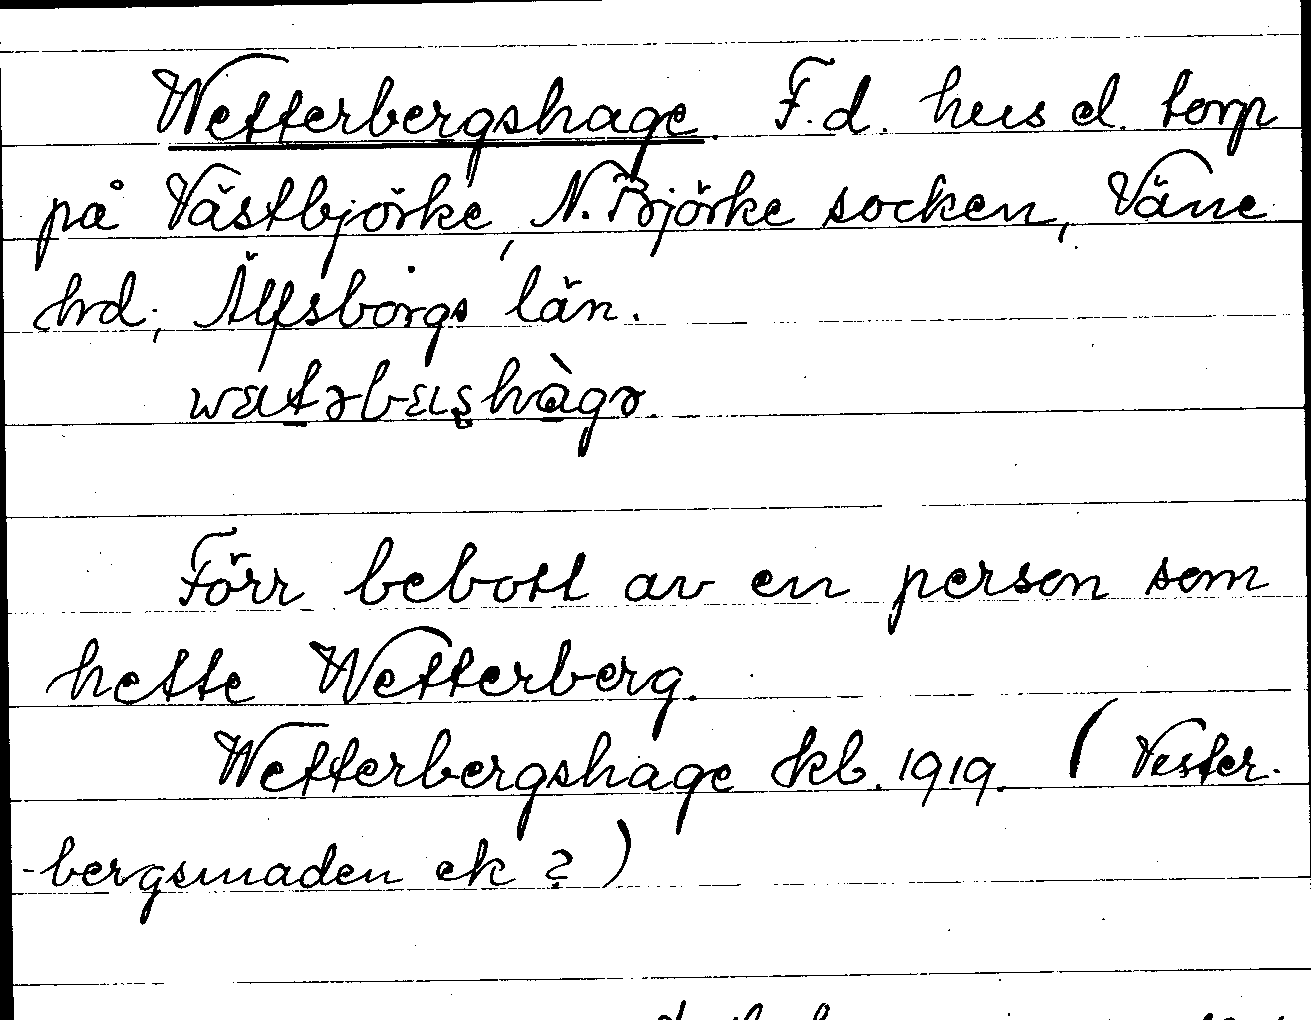 Wetterbergshage. F.d. hus el. torp
på Västbjörke, N. Björke socken, Väne
hrd, Älfsborgs län.
Förr bebott av en person som
hette Wetterberg.
Wetterbergshage kb. 1919. (Vester-
-bergsmaden ek ?)